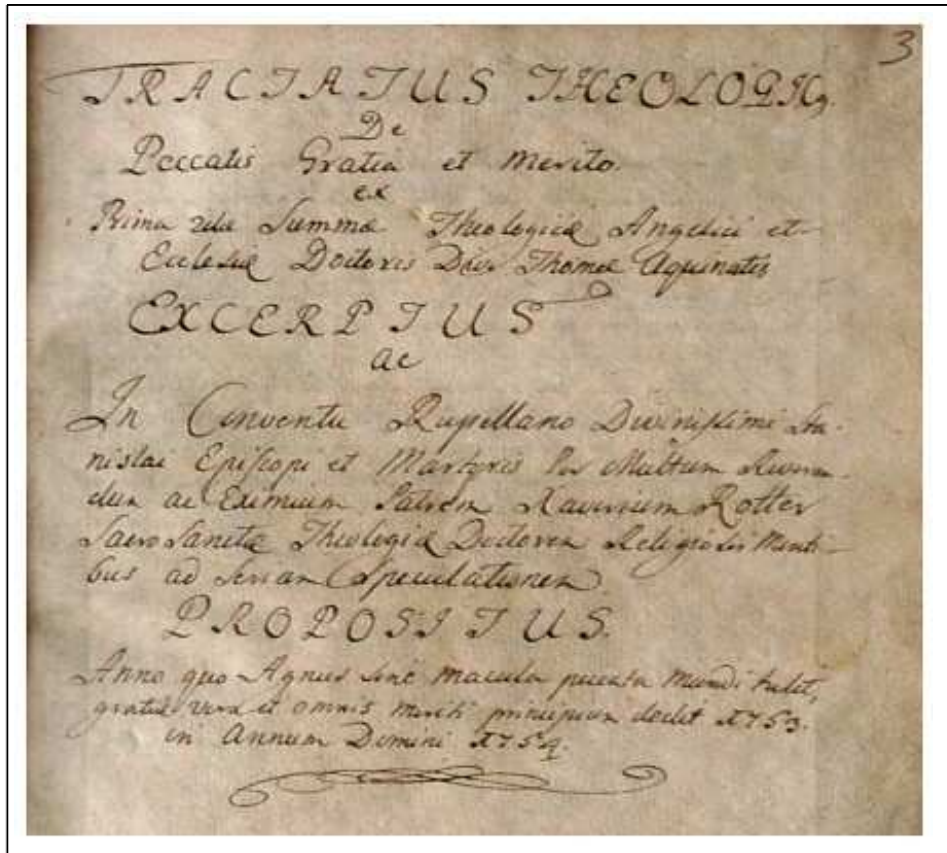 3
TRACTATUS THEOLOGIC9
De
Peccatis Gratia et Merito.
ex
Prima 2dæ Summæ Theologicæ Angelici et
Eclesiæ Doctoris Divi Thomæ Aquinatis
EXCERPTUS
ac
In Conventu Rupellano Divinissimi Sta-
nislai Episcopi et Martyris Per Multum Reveren-
dum ac Eximium Patrem Xaverium Rotter
Sacro Sanctæ Theologiæ Doctorem Religiosis Menti-
bus ad Seriam Speculationem
PROPOSITUS.
Anno quo Agnus sine macula peccata Mundi tulit,
gratiæ vera et omnis meriti principium dedit 1753.
in Annum Domini 1754.